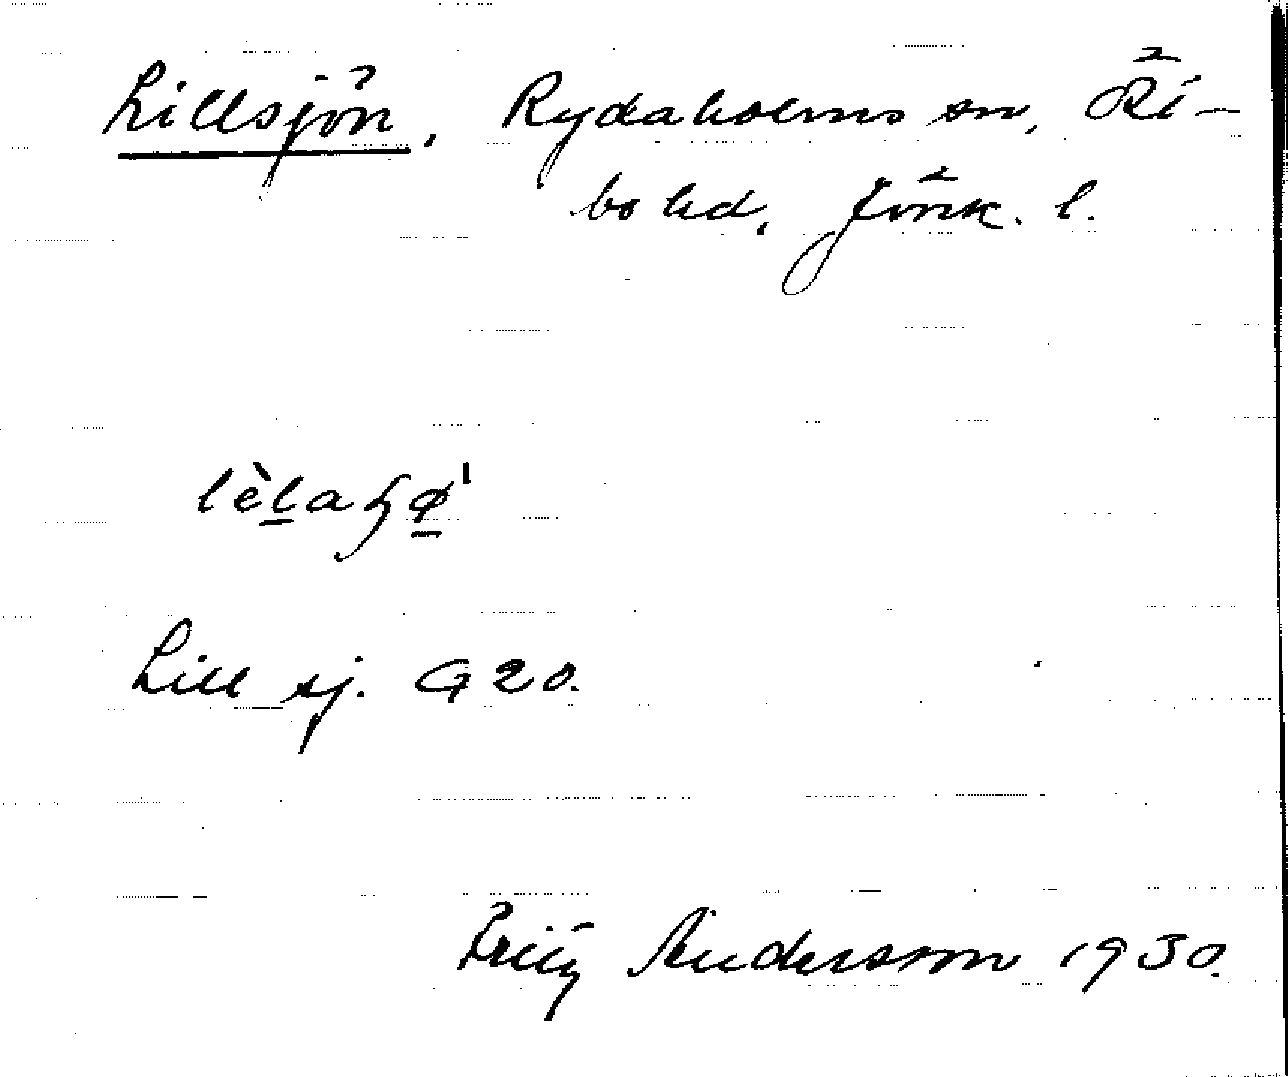 Lillsjön, Rydaholms sn, Öst-
bo hd, Jönk. l.
lèl̲aɧø̲ˈ
Lill sj. G 20.
Fritz Andersson 1930.